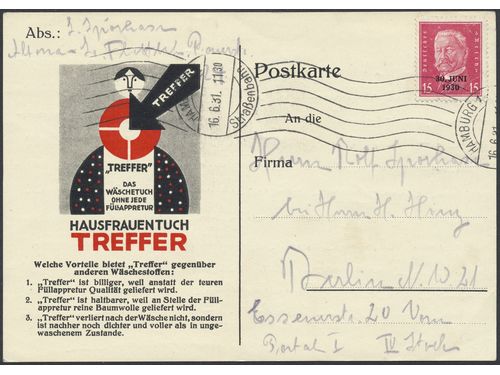 Abs.: J. Sporhase
Postkarte
An die
Firma
Herrn Rolf Sporhase
bei Herrn H. Hinz
Berlin N.W. 21
Essenerstr. 20 Vorn
Portal I IV Stock
TREFFER
„TREFFER”
DAS
WÄSCHETUCH
OHNE JEDE
FÜLLAPPRETUR
HAUSFRAUENTUCH
TREFFER
Welche Vorteile bietet „Treffer” gegenüber
anderen Wäschestoffen:
1. „Treffer” ist billiger, weil anstatt der teuren
Füllappretur Qualität geliefert wird.
2. „Treffer” ist haltbarer, weil an Stelle der Füll-
appretur reine Baumwolle geliefert wird.
3. „Treffer” verliert nach der Wäsche nicht, sondern
ist nachher noch dichter und voller als in unge-
waschenem Zustande.
16.6.31. 11-1230
Straßenbahn
30. JUNI
1930
15 15
HAMBURG 1
16.6.31